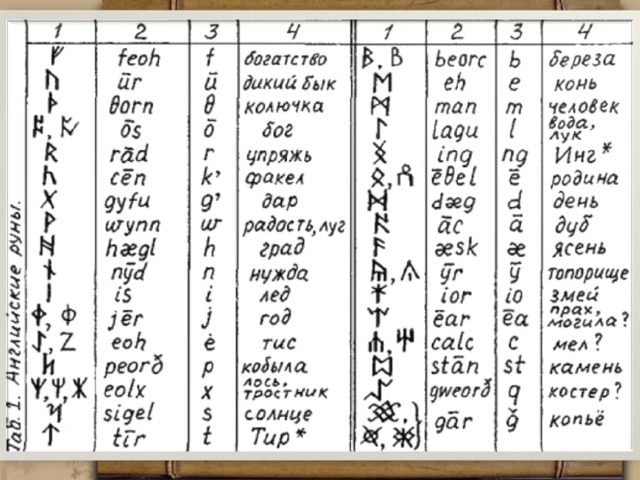 Таб. 1. Английские руны.
1 2 3 4 1 2 3 4
ᚠ feoh f богатство ᛒ, ᛒ beorc b береза
ᚢ ūr ū дикий бык ᛖ eh e конь
ᚦ θorn θ колючка ᛗ man m человек
ōs ō бог ᛚ lagu l вода, лук
ᚱ rād r упряжь ᛝ ing ng Инг*
cēn k’ факел ᛟ, ēðel ē родина
ᚷ gyfu g’ дар ᛞ dæg d день
ᚹ wynn w радость, луг ᚪ āc ā дуб
ᚻ hægl h град ᚫ æsk æ ясень
ᚾ nȳd n нужда ȳr ȳ топорище
ᛁ is i лед ᛡ ior io змей
jēr j год ᛠ ēar ēa прах, могила?
eoh ė тис calc c мел?
peorð p кобыла ᛥ stān st камень
eolx x лось, тростник gweorð q костер?
sigel s солнце gār ğ копьё
ᛏ tīr t Тир*